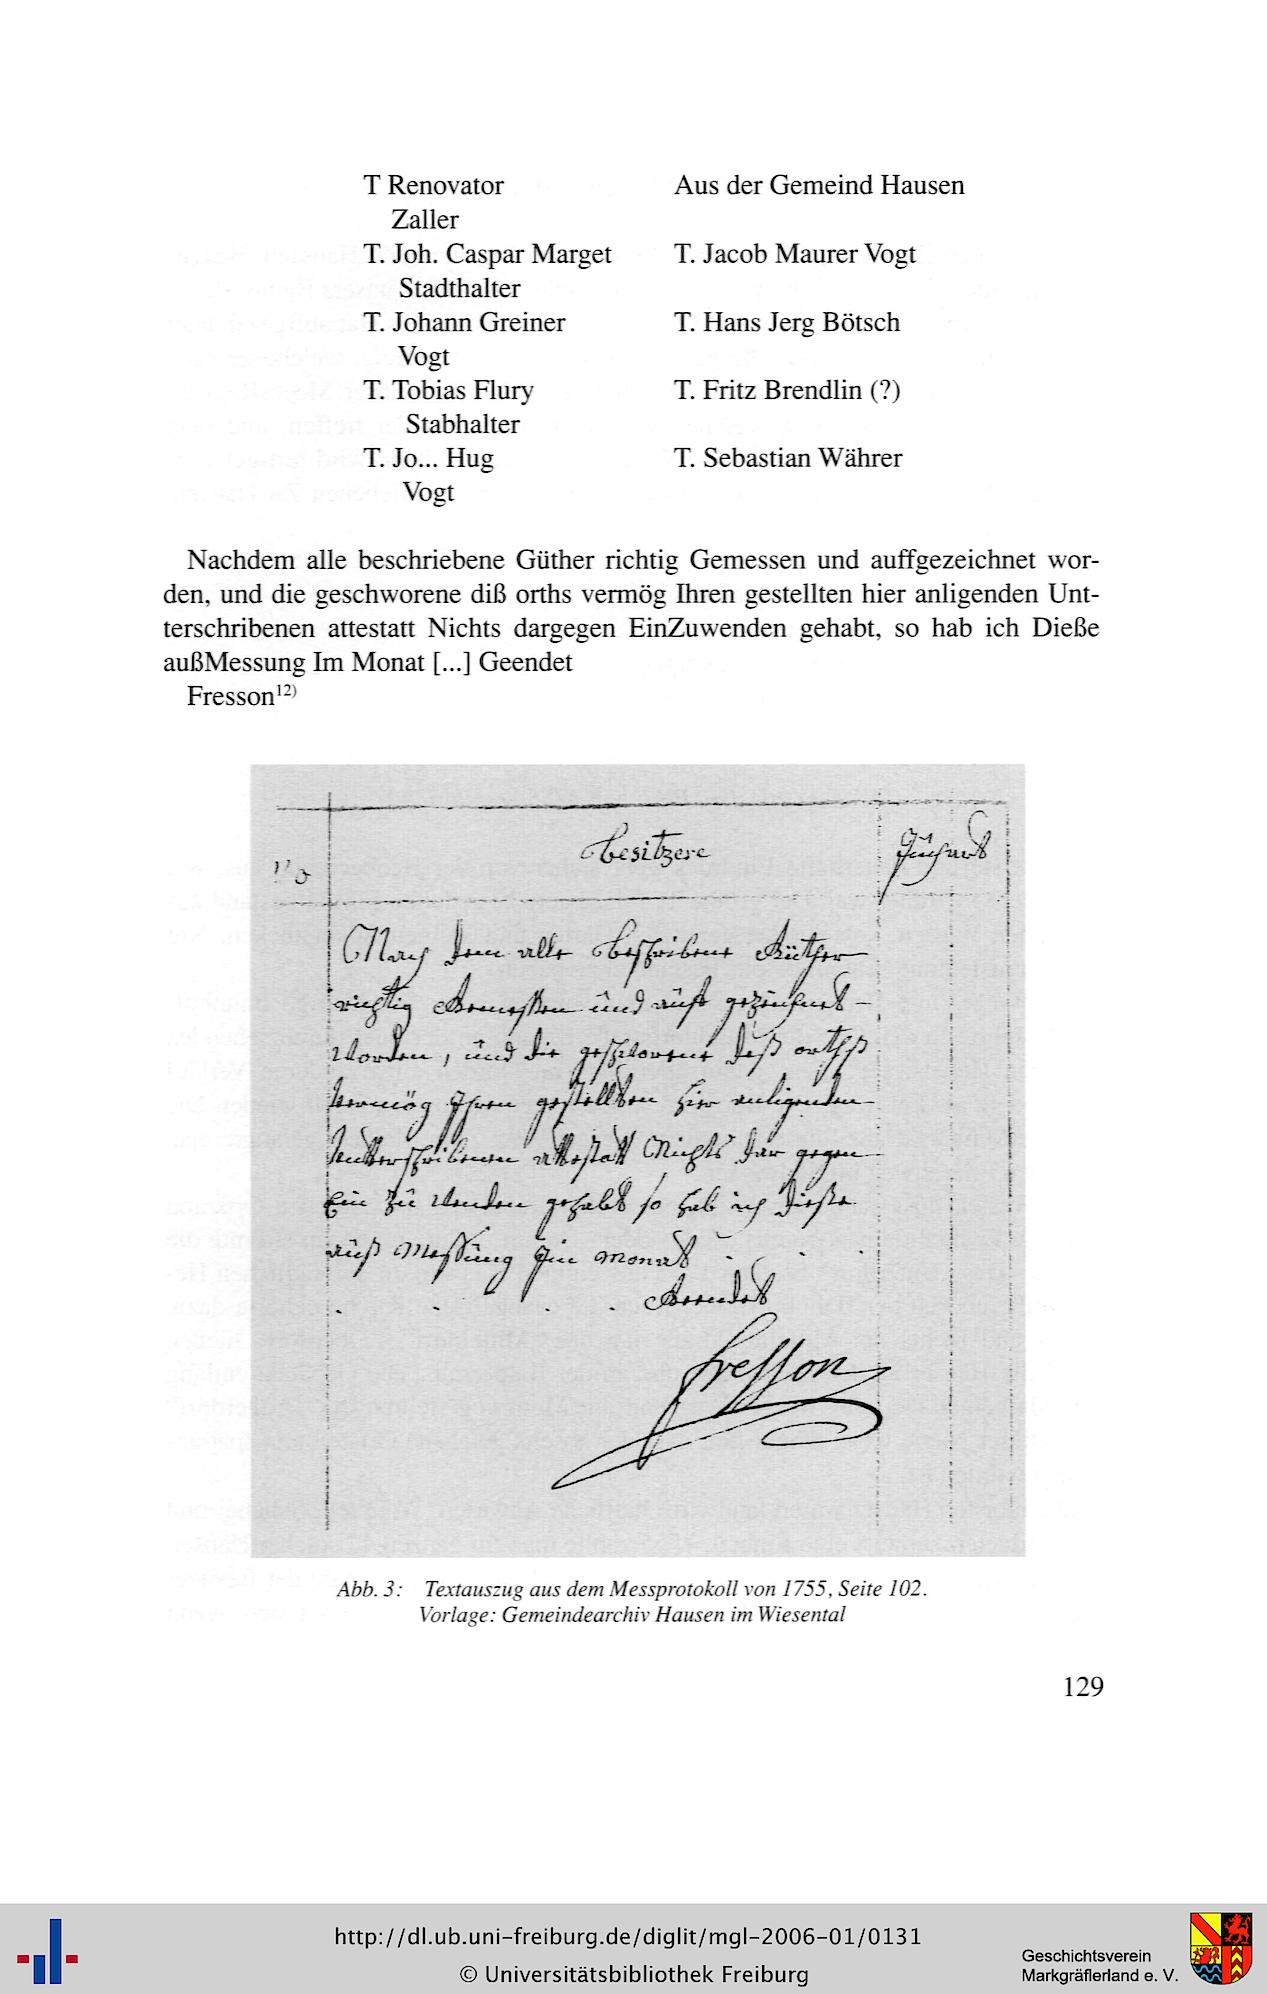 T Renovator Aus der Gemeind Hausen
Zaller
T. Joh. Caspar Marget T. Jacob Maurer Vogt
Stadthalter
T. Johann Greiner T. Hans Jerg Bötsch
Vogt
T. Tobias Flury T. Fritz Brendlin (?)
Stabhalter
T. Jo... Hug T. Sebastian Währer
Vogt
Nachdem alle beschriebene Güther richtig Gemessen und auffgezeichnet wor-
den, und die geschworene diß orths vermög Ihren gestellten hier anligenden Unt-
terschribenen attestatt Nichts dargegen EinZuwenden gehabt, so hab ich Dieße
außMessung Im Monat [...] Geendet
Fresson12)
No Besitzere Jüchart
Nach dem alle Beschribene Güther
richtig Gemessen und auff gezeichnet
worden, und die geschworene deß orths
vermög Ihren gestellten hier anligenden
Untterschribenen attestatt Nichts dar gegen
Ein zu wenden gehabt so hab ich dieße
auß Messung Im monat . . .
. . . . Geendet
Fresson
Abb. 3: Textauszug aus dem Messprotokoll von 1755, Seite 102.
Vorlage: Gemeindearchiv Hausen im Wiesental
129
http://dl.ub.uni-freiburg.de/diglit/mgl-2006-01/0131
© Universitätsbibliothek Freiburg
Geschichtsverein
Markgräflerland e. V.